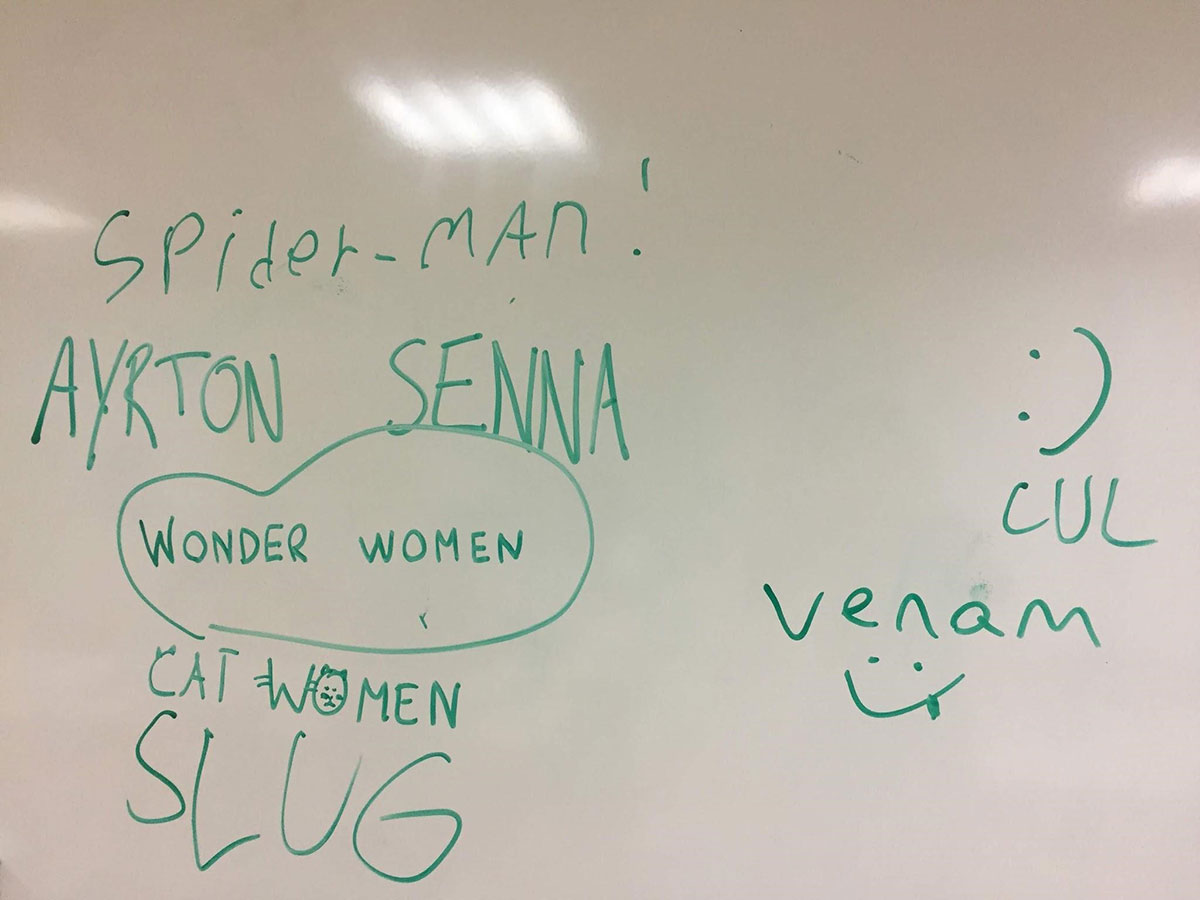 Spider-MAN!
AYRTON SENNA
WONDER WOMEN
CAT WOMEN
SLUG
:)
CUL
venam